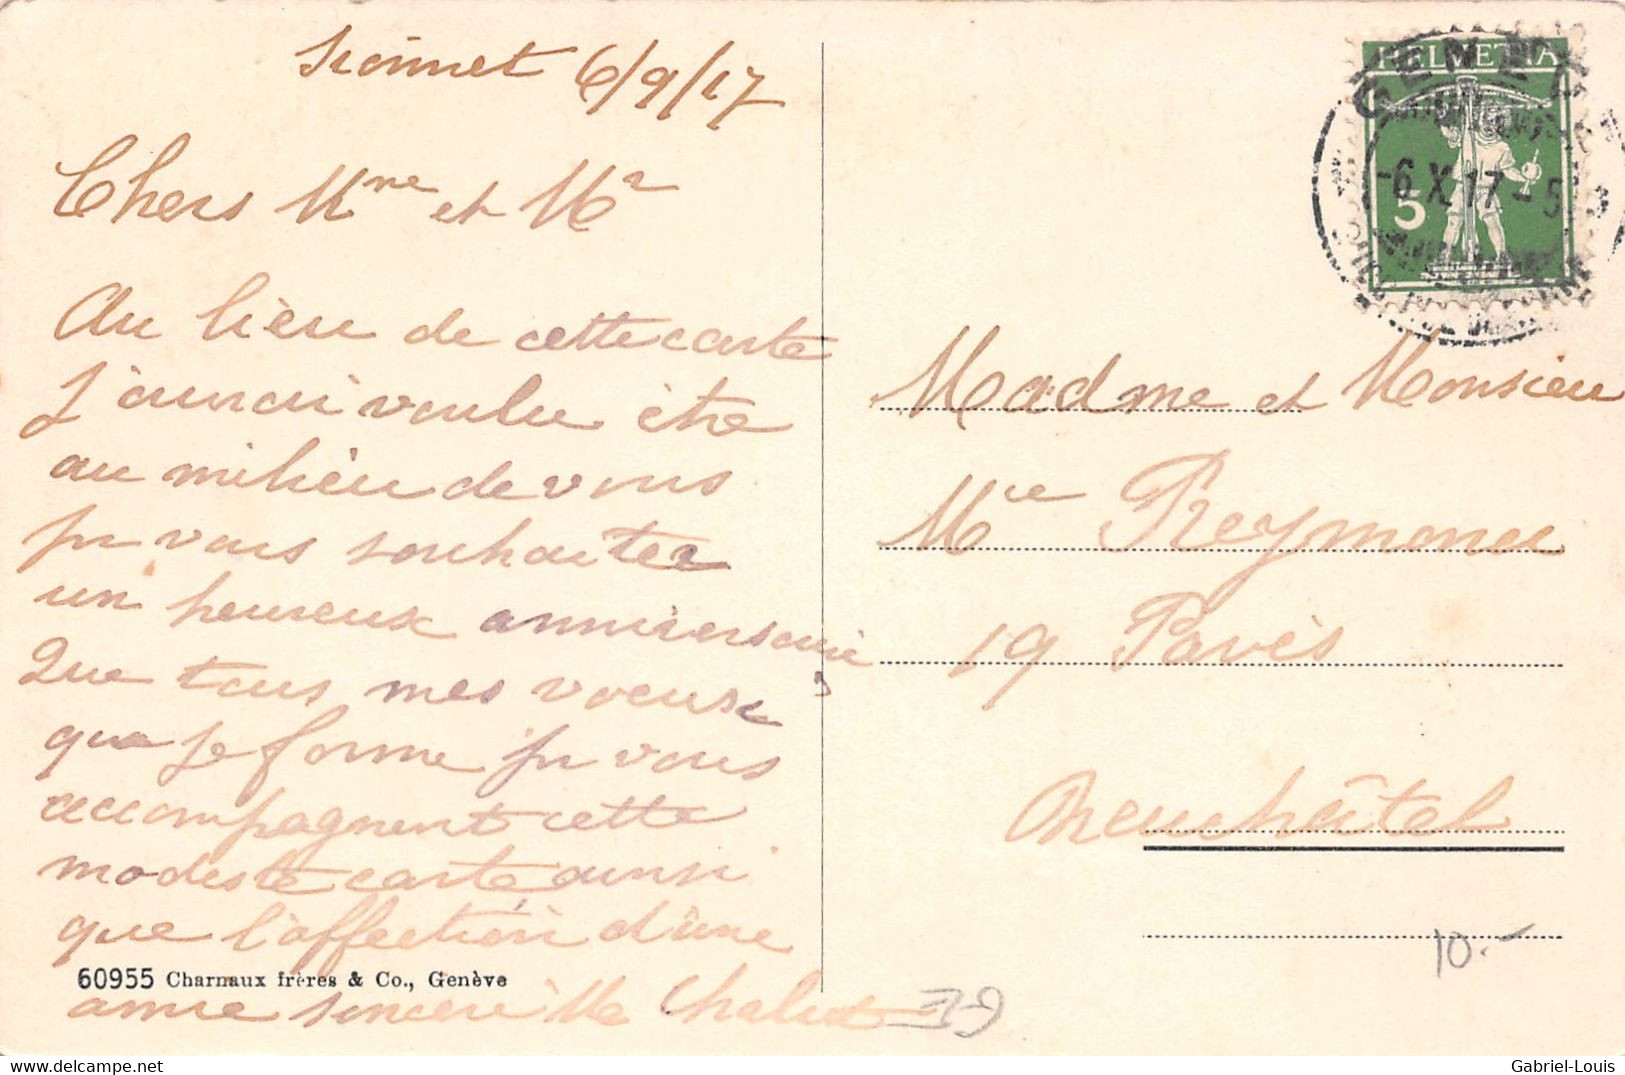 Sionnet 6/9/17
Chers Mme et Mr
Au lieu de cette carte
j'aurai voulu être
au milieu de vous
pr vous souhaiter
un heureux anniversaire
Que tous mes voeux
que je forme pr vous
accompagnent cette
modeste carte ainsi
que l'affection d'une
60955 Charnaux frères & Co., Genève
amie sincère
HELVETIA
5
GENÈVE
-6.X.17.-5
Madme et Monsieu
Reymond
19 Pavès
Neuchâtel
10.-
www.delcampe.net
Gabriel-Louis